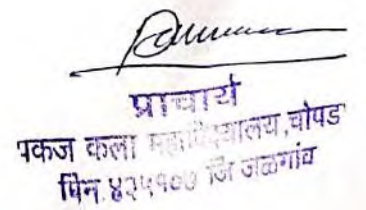 प्राचार्य
पकज कला महाविद्यालय,चोपड
पिन.४२५१०७ जि जळगांव